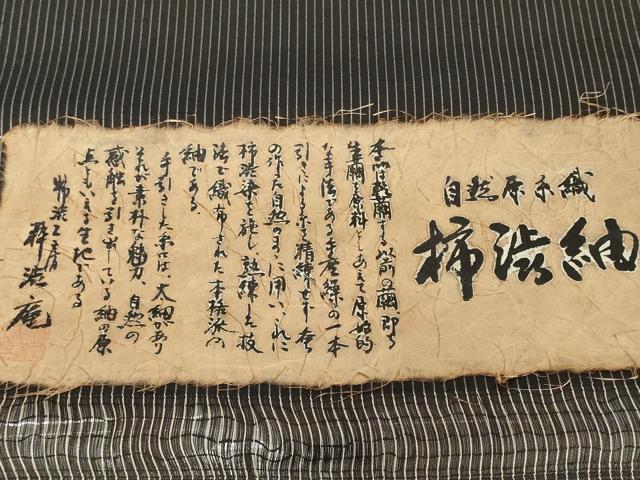 自然原糸織
柿渋紬
本品は乾繭する以前の繭、即ち
生繭を原料とし、あえて原始的
な手法である手座繰の一本
引きによる糸を精練せず
の作した自然のままに用い、これに
柿渋染を施し、熟練した技
法で織布された本格派の
紬である。
手引きした糸には、太細があり
それが素朴な魅力、自然の
感触を引き出している紬の原
点ともいえる生地である
工房
渋庵